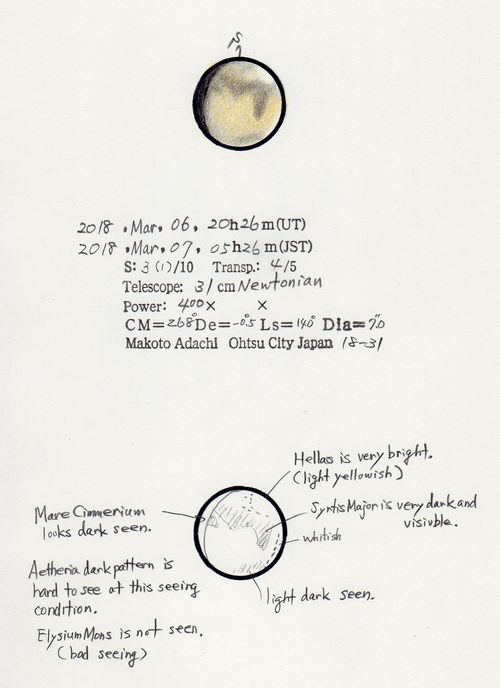 S
2018 . Mar. 06, 20h26m(UT)
2018 . Mar. 07, 05h26m(JST)
S: 3 (1)/10 Transp.: 4/5
Telescope: 31 cm Newtonian
Power: 400× ×
CM=268° De=-0.5° Ls=140° Dia=7.0"
Makoto Adachi Ohtsu City Japan 18-31
Hellas is very bright.
(light yellowish)
Mare Cimmerium
looks dark seen.
Syrtis Major is very dark and
visivble.
whitish
Aetheria dark pattern is
hard to see at this seeing
condition.
light dark seen.
Elysium Mons is not seen.
(bad seeing)